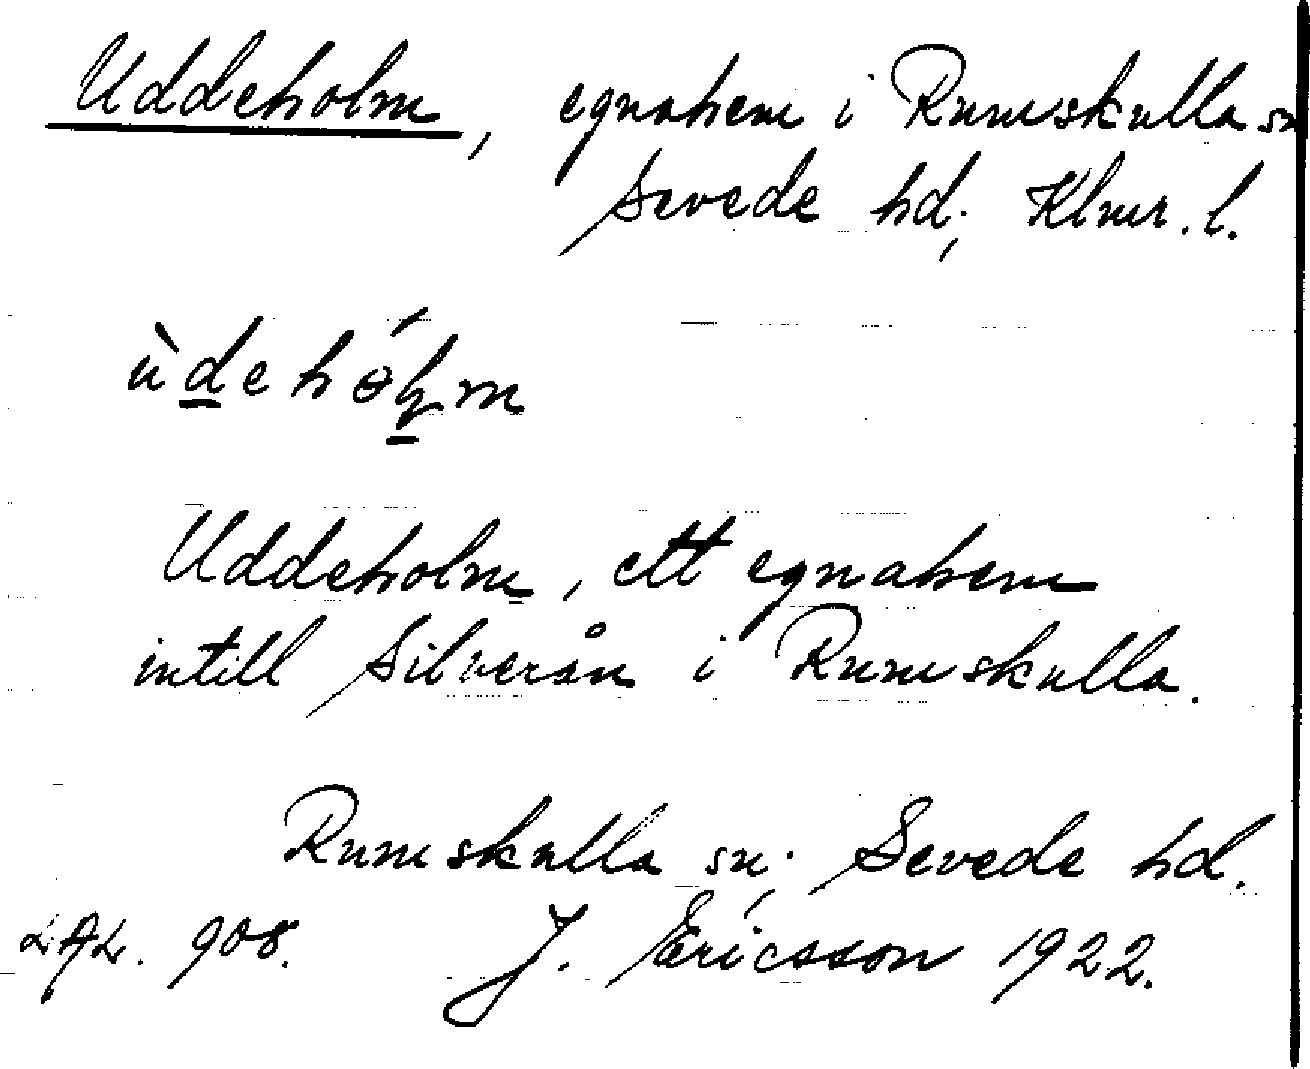 Uddeholm, egnahem i Rumskulla sn
Sevede hd; Klmr. l.
ùdehólm
Uddeholm, ett egnahem
intill Silverån i Rumskulla.
Rumskulla sn; Sevede hd.
908. J. Ericsson 1922.